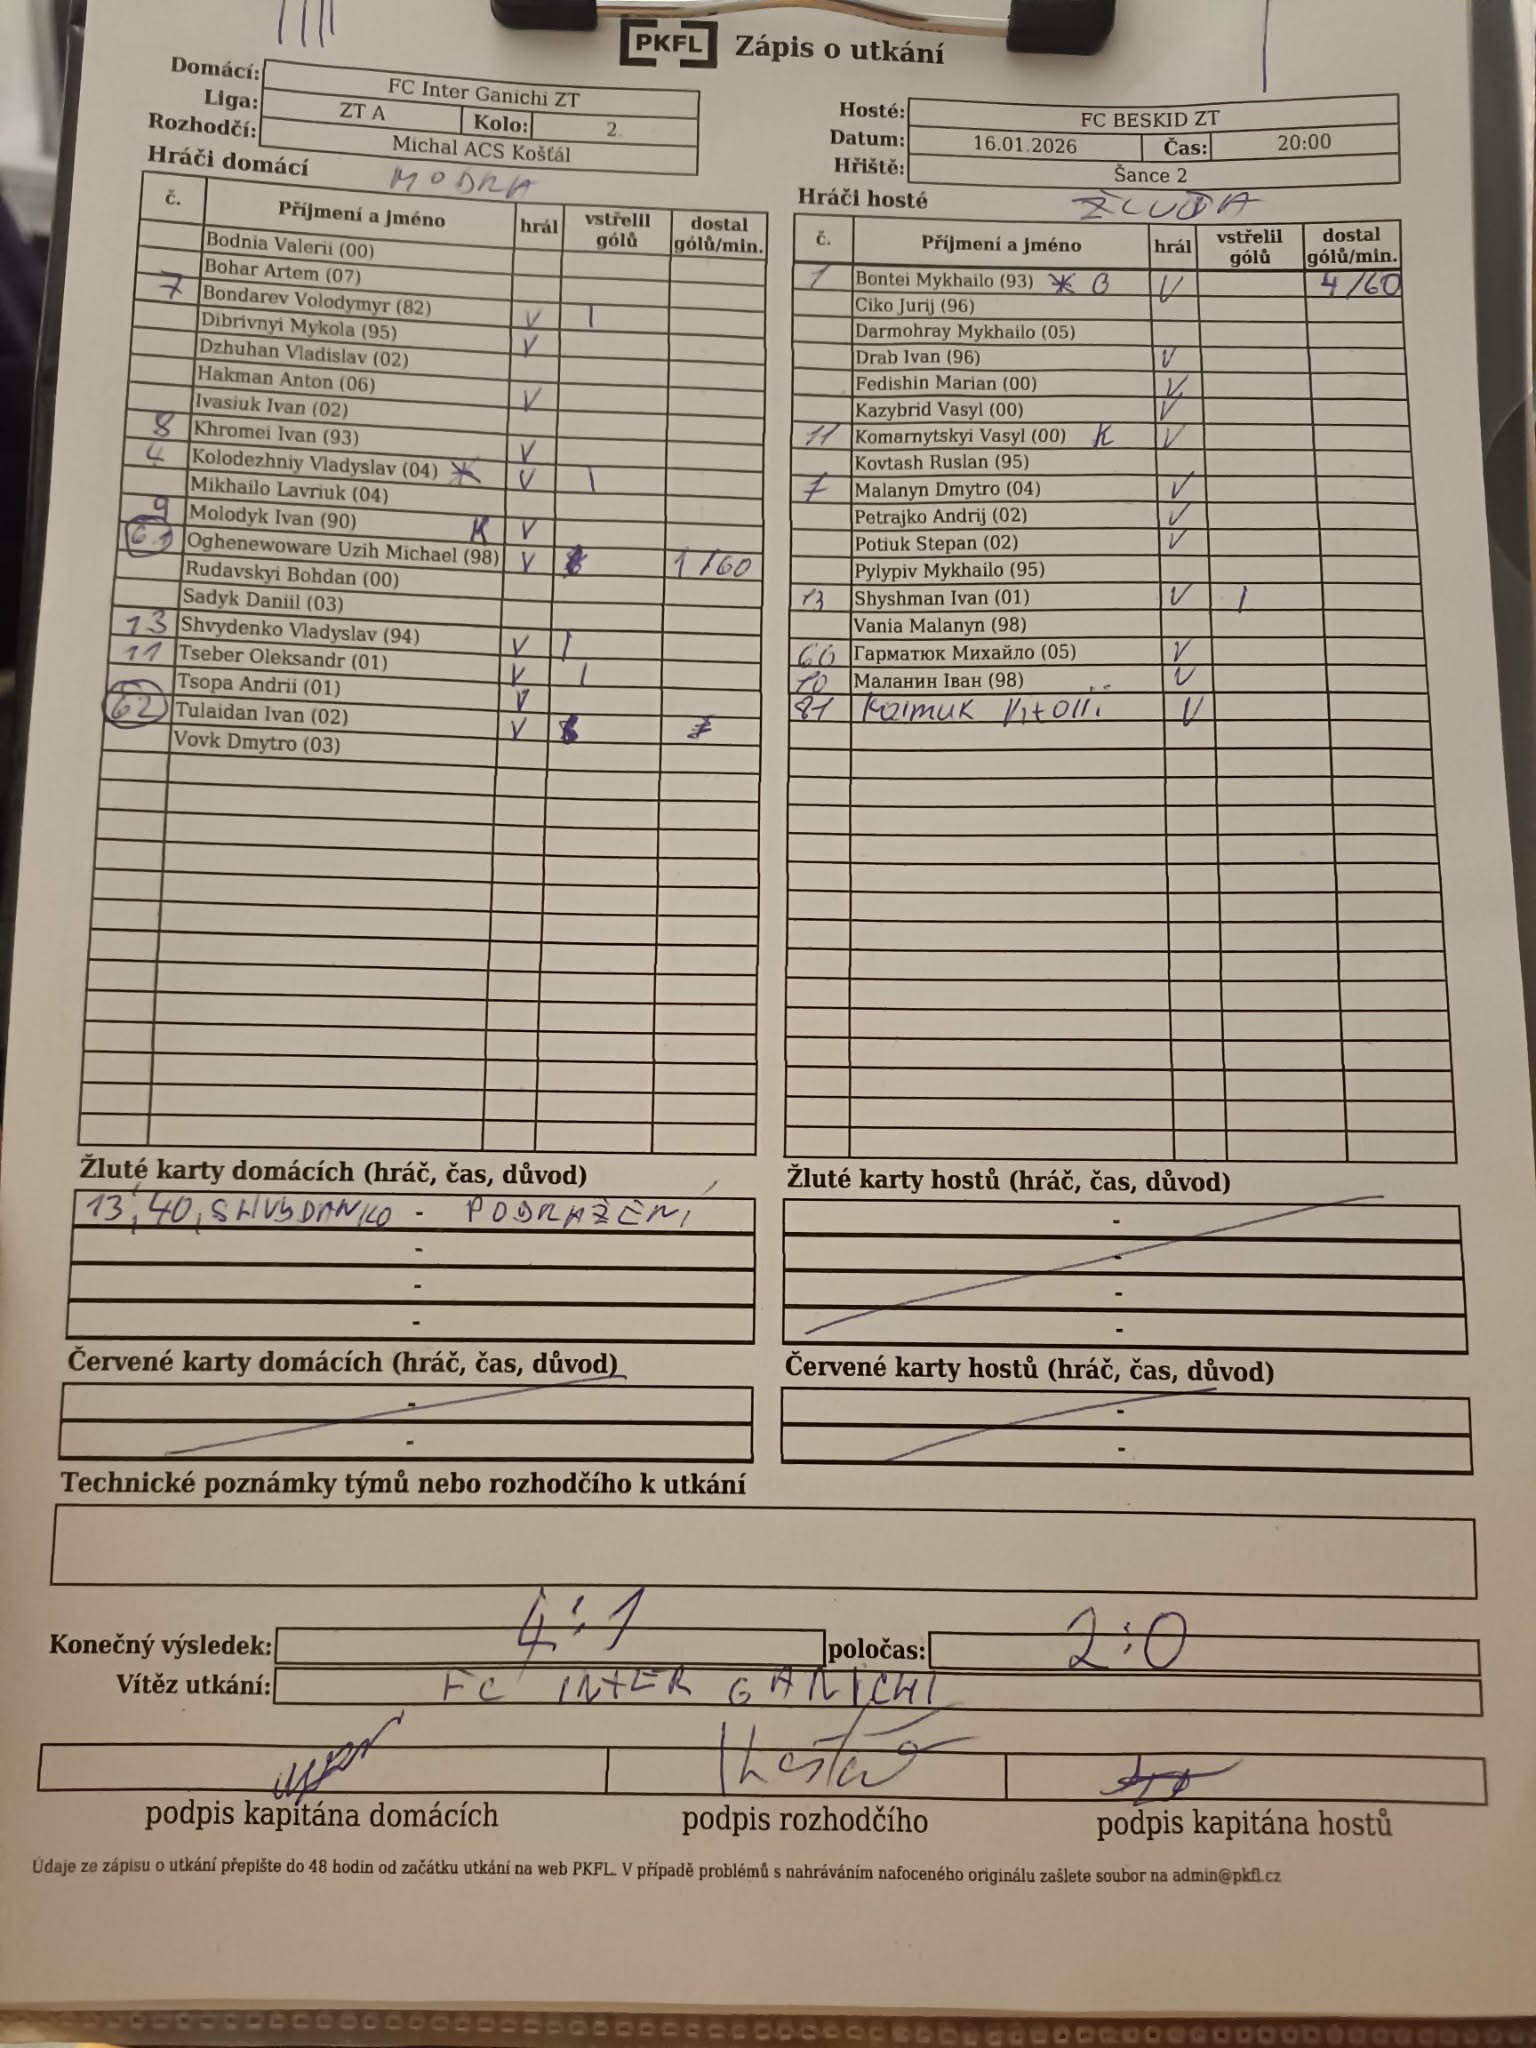 PKFL Zápis o utkání
Domácí: FC Inter Ganichi ZT
Liga: ZT A Kolo: 2
Rozhodčí: Michal ACS Košťál
Hosté: FC BESKID ZT
Datum: 16.01.2026 Čas: 20:00
Hřiště: Šance 2
Hráči domácí MODRA
č. Příjmení a jméno hrál vstřelil gólů dostal gólů/min.
Bodnia Valerii (00)
Bohar Artem (07)
7 Bondarev Volodymyr (82) V 1
Dibrivnyi Mykola (95) V
Dzhuhan Vladislav (02)
Hakman Anton (06) V
Ivasiuk Ivan (02)
8 Khromei Ivan (93) V
4 Kolodezhniy Vladyslav (04) V 1
Mikhailo Lavriuk (04)
9 Molodyk Ivan (90) K V
61 Oghenewoware Uzih Michael (98) V 1/60
Rudavskyi Bohdan (00)
Sadyk Daniil (03)
13 Shvydenko Vladyslav (94) V 1
11 Tseber Oleksandr (01) V 1
Tsopa Andrii (01) V
62 Tulaidan Ivan (02) V
Vovk Dmytro (03)
Hráči hosté ŽLUTÁ
č. Příjmení a jméno hrál vstřelil gólů dostal gólů/min.
1 Bontei Mykhailo (93) B V 4/60
Ciko Jurij (96)
Darmohray Mykhailo (05)
Drab Ivan (96) V
Fedishin Marian (00) V
Kazybrid Vasyl (00) V
11 Komarnytskyi Vasyl (00) K V
Kovtash Ruslan (95)
7 Malanyn Dmytro (04) V
Petrajko Andrij (02) V
Potiuk Stepan (02) V
Pylypiv Mykhailo (95)
13 Shyshman Ivan (01) V 1
Vania Malanyn (98)
66 Гарматюк Михайло (05) V
10 Маланин Іван (98) V
81 V
Žluté karty domácích (hráč, čas, důvod)
13, 40, SHVYDANKO - PODRAŽENÍ
-
-
-
Žluté karty hostů (hráč, čas, důvod)
-
-
-
-
Červené karty domácích (hráč, čas, důvod)
-
-
Červené karty hostů (hráč, čas, důvod)
-
-
Technické poznámky týmů nebo rozhodčího k utkání
Konečný výsledek: 4:1 poločas: 2:0
Vítěz utkání: FC INTER GANICHI
podpis kapitána domácích podpis rozhodčího podpis kapitána hostů
Údaje ze zápisu o utkání přepište do 48 hodin od začátku utkání na web PKFL. V případě problémů s nahráváním nafoceného originálu zašlete soubor na admin@pkfl.cz